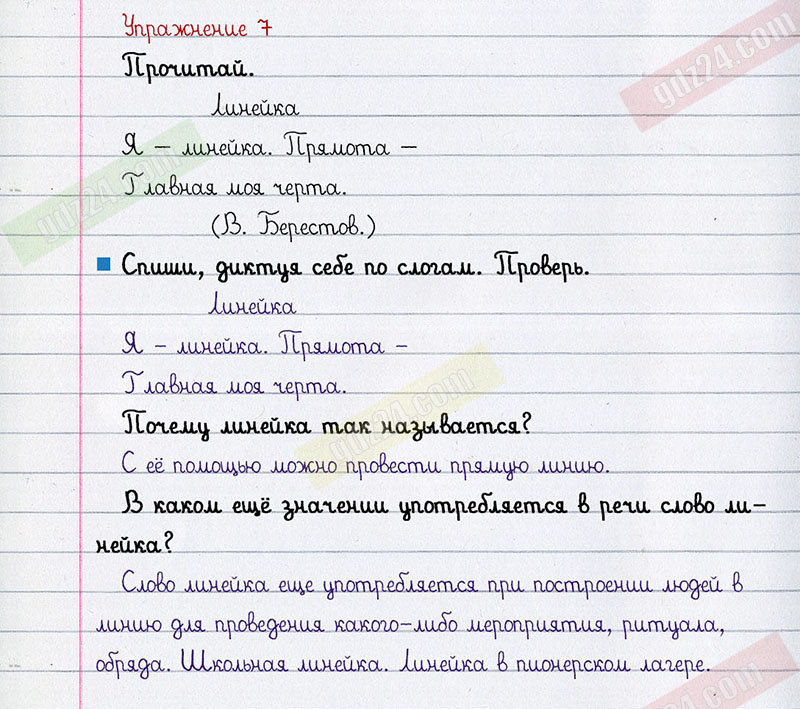 Упражнение 7
Прочитай.
Линейка
Я – линейка. Прямота –
Главная моя черта.
(В. Берестов.)
Спиши, диктуя себе по слогам. Проверь.
Линейка
Я – линейка. Прямота –
Главная моя черта.
Почему линейка так называется?
С её помощью можно провести прямую линию.
В каком ещё значении употребляется в речи слово ли-
нейка?
Слово линейка еще употребляется при построении людей в
линию для проведения какого-либо мероприятия, ритуала,
обряда. Школьная линейка. Линейка в пионерском лагере.
gdz24.com
gdz24.com
gdz24.com